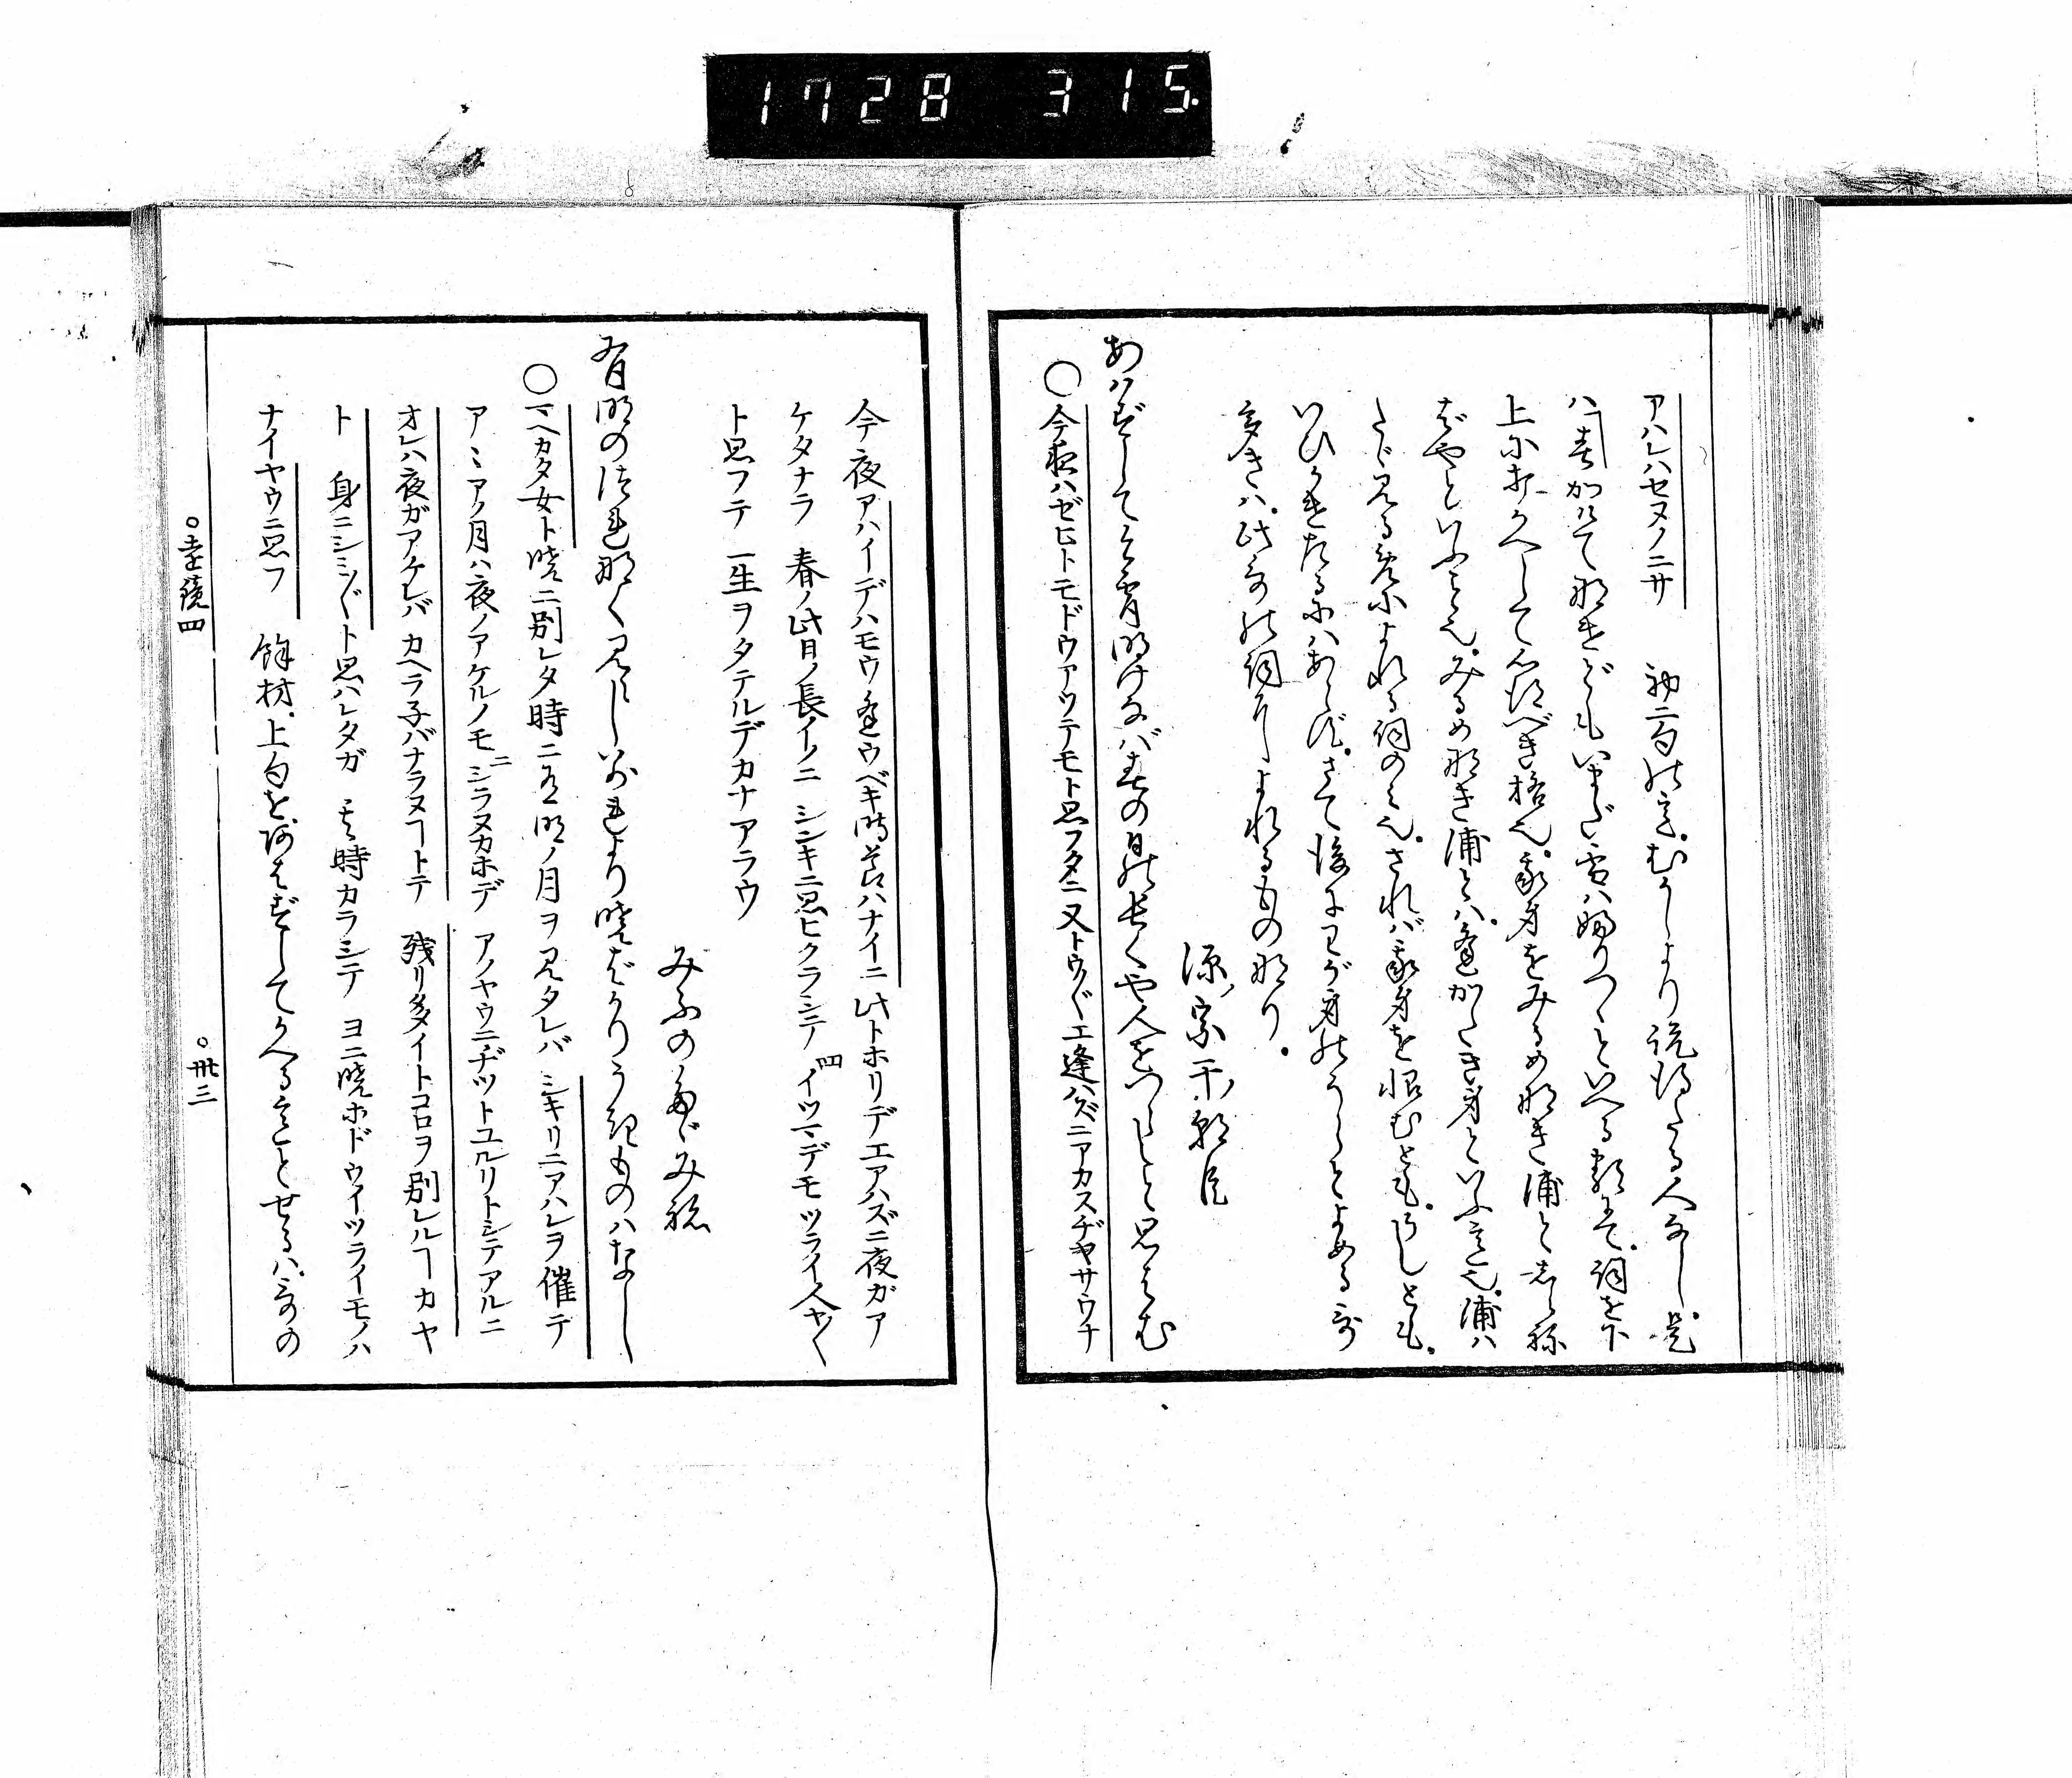 1728 315
アハレハセヌノニサ 初二句の意。むかしより説得たる人なし。是
ハ春かけて鳴けどもいまだ雪ハ婦りつゝといへる類にて。詞を下
上に打かへして心得べき格也。我身をみるめ那き浦と志ら祢
ばやといふこと也。みるめ那き浦とハ。逢がたき身といふ意也。浦ハ
たゞ見る米によれる詞のミ也。されバ我身を恨むとも。うしとも。
いひかけたるにハあらず。さて後にわが身のうらとよめる哥
多きハ。此哥の詞によれるもの那り。
源ノ宗于ノ朝臣
あハずしてこよひ明けなバ春の日の長くや人をつらしと思はむ
○今夜ハゼヒトモドウアツテモト思フタニ又トウ〴〵エ逢ハズニアカスヂヤサウナ
今夜アハイデハモウ逢ウベキ時节ハナイニ 此トホリデエアハズニ夜ガア
ケタナラ 春ノ此日ノ長イノニ シンキニ思ヒクラシテ 四イツマデモツライ人ヤ〳〵
ト思フテ 一生ヲタテルデカナアラウ
みふのたゞみ祢
有明のつれ那く見えし別れより暁ばかりうき物ハなし
○マヘカタ女ト暁ニ別レタ時ニ有明ノ月ヲ見タレバ シキリニアハレヲ催テ
アヽアノ月ハ夜ノアケルノモ 二シラヌカホデ アノヤウニヂツトユルリトシテアルニ
オレハ夜ガアケレバ カヘラ子バナラヌヿトテ 残リ多イトコロヲ別レルヿカヤ
ト 身ニシミ〴〵ト思ハレタガ 其時カラシテ ヨニ暁ホドウイツライモノハ
ナイヤウニ思フ 餘材。上句を。あはずしてかへる意とせるハ。哥の
○遠鏡四 ○卅三